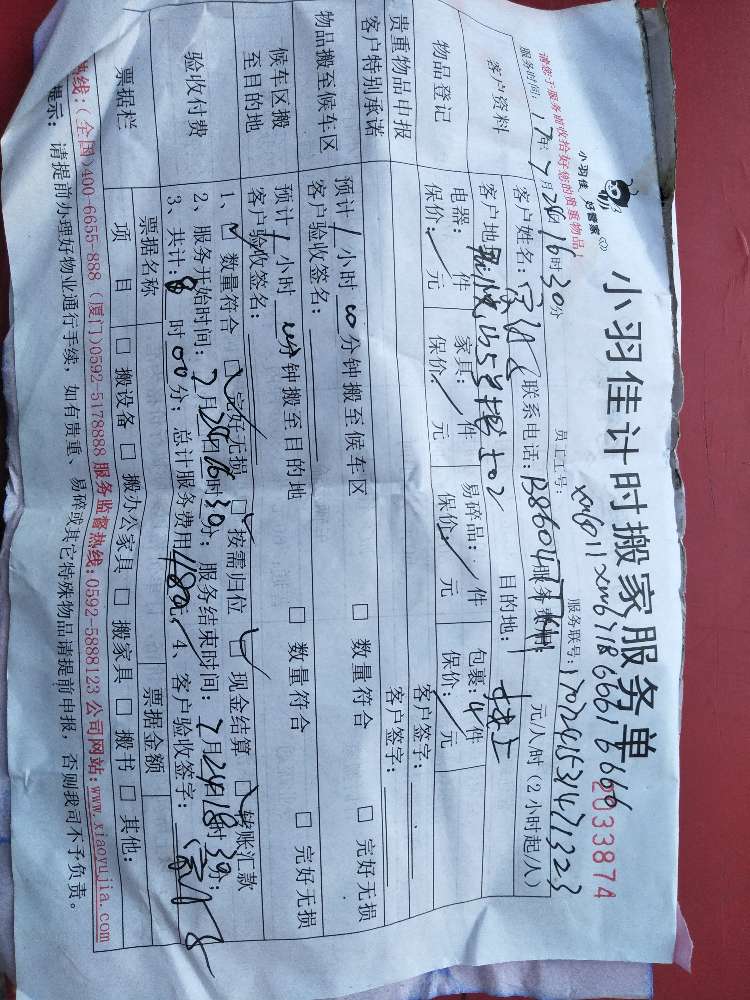 小羽佳 好管家
小羽佳计时搬家服务单
2033874
请您于服务前收拾好您的贵重物品!
员工工号:
服务联号:
服务时间: 17年 7月 24日 16时 30分
客户资料
客户姓名: 联系电话: 服务费用: 元/人/时 (2小时起/人)
客户地址: 目的地:
物品登记
电器: 件 家具: 件 易碎品: 件 包裹: 4件
贵重物品申报
保价: 元 保价: 元 保价: 元 保价: 元
客户特别承诺
客户签字:
客户签字:
物品搬至候车区
预计 1 小时 00分钟搬至候车区 □ 数量符合 □ 完好无损
客户验收签名:
候车区搬至目的地
预计 1 小时 分钟搬至目的地 □ 数量符合 □ 完好无损
客户验收签名:
验收付费
1、□ 数量符合 □ 完好无损 □ 按需归位 □ 现金结算 □ 转账汇款
2、服务开始时间: 7月 24日 16时 30分; 服务结束时间: 7月 24日 18时 30分;
3、共计: 时 00分; 总计服务费用 480元; 4、客户验收签字:
票据栏
票据名称 票据金额
项 目 □ 搬设备 □ 搬办公家具 □ 搬家具 □ 搬书 □ 其他:
热线: (全国)400-6655-888 (厦门)0592-5178888 服务监督热线: 0592-5888123 公司网站: www.xiaoyujia.com
提示: 请提前办理好物业通行手续, 如有贵重、易碎或其它特殊物品请提前申报, 否则我司不予负责。